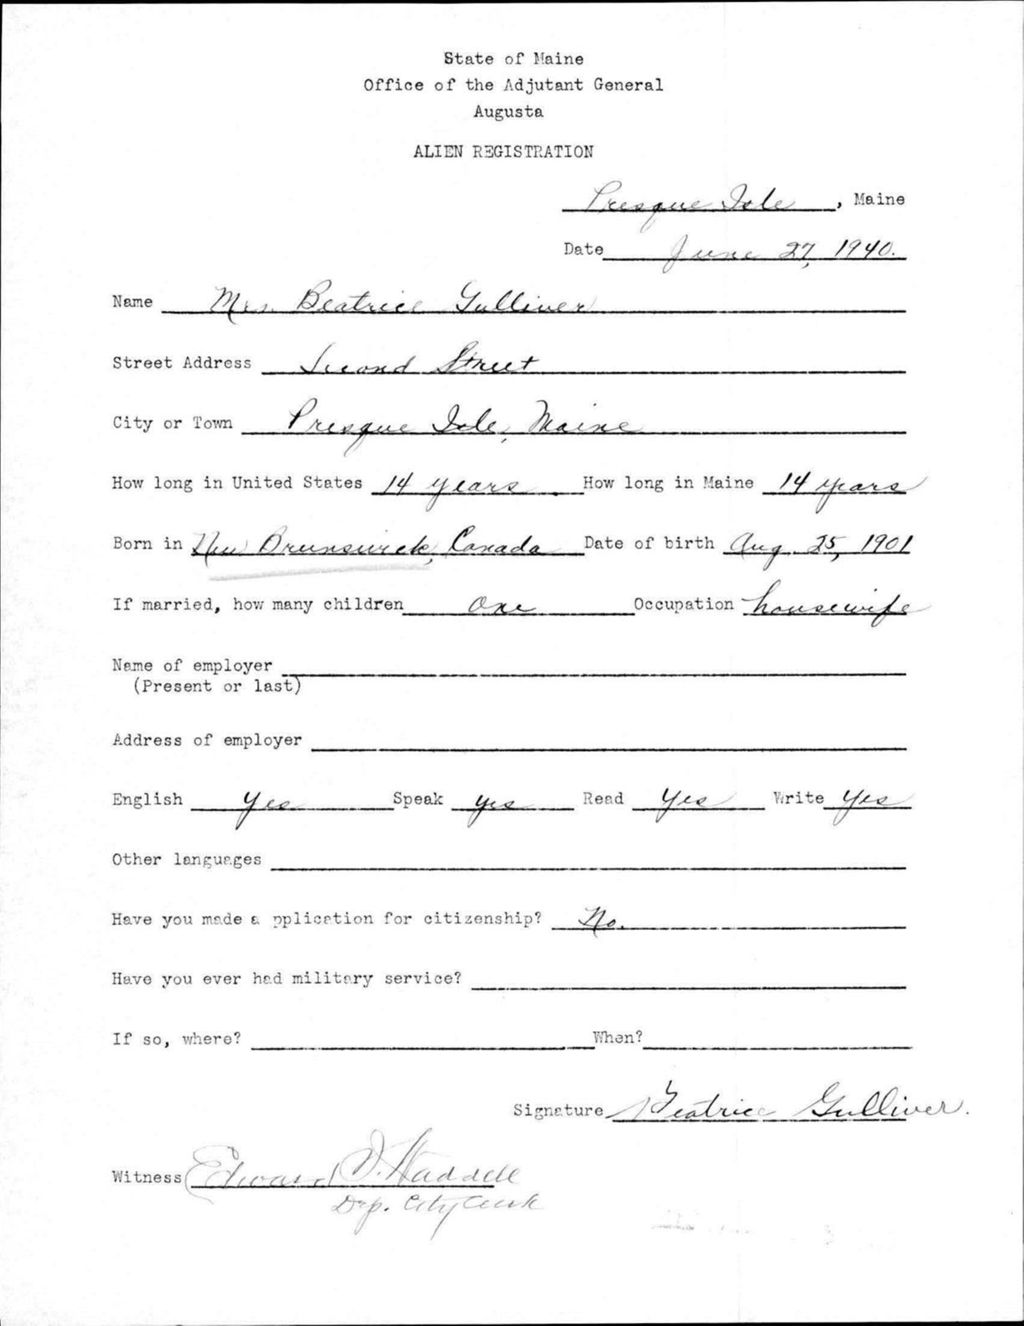 State of Maine
Office of the Adjutant General
Augusta
ALIEN REGISTRATION
Presque Isle, Maine
Date June 27, 1940.
Name Mrs. Beatrice Gulliver
Street Address Second Street
City or Town Presque Isle, Maine
How long in United States 14 years How long in Maine 14 years
Born in New Brunswick, Canada Date of birth Aug. 25, 1901
If married, how many children One Occupation housewife
Name of employer
(Present or last)
Address of employer
English Yes Speak yes Read Yes Write Yes
Other languages
Have you made a pplication for citizenship? No.
Have you ever had military service?
If so, where? When?
Signature Beatrice Gulliver.
Witness Edward
Dep. City Clerk